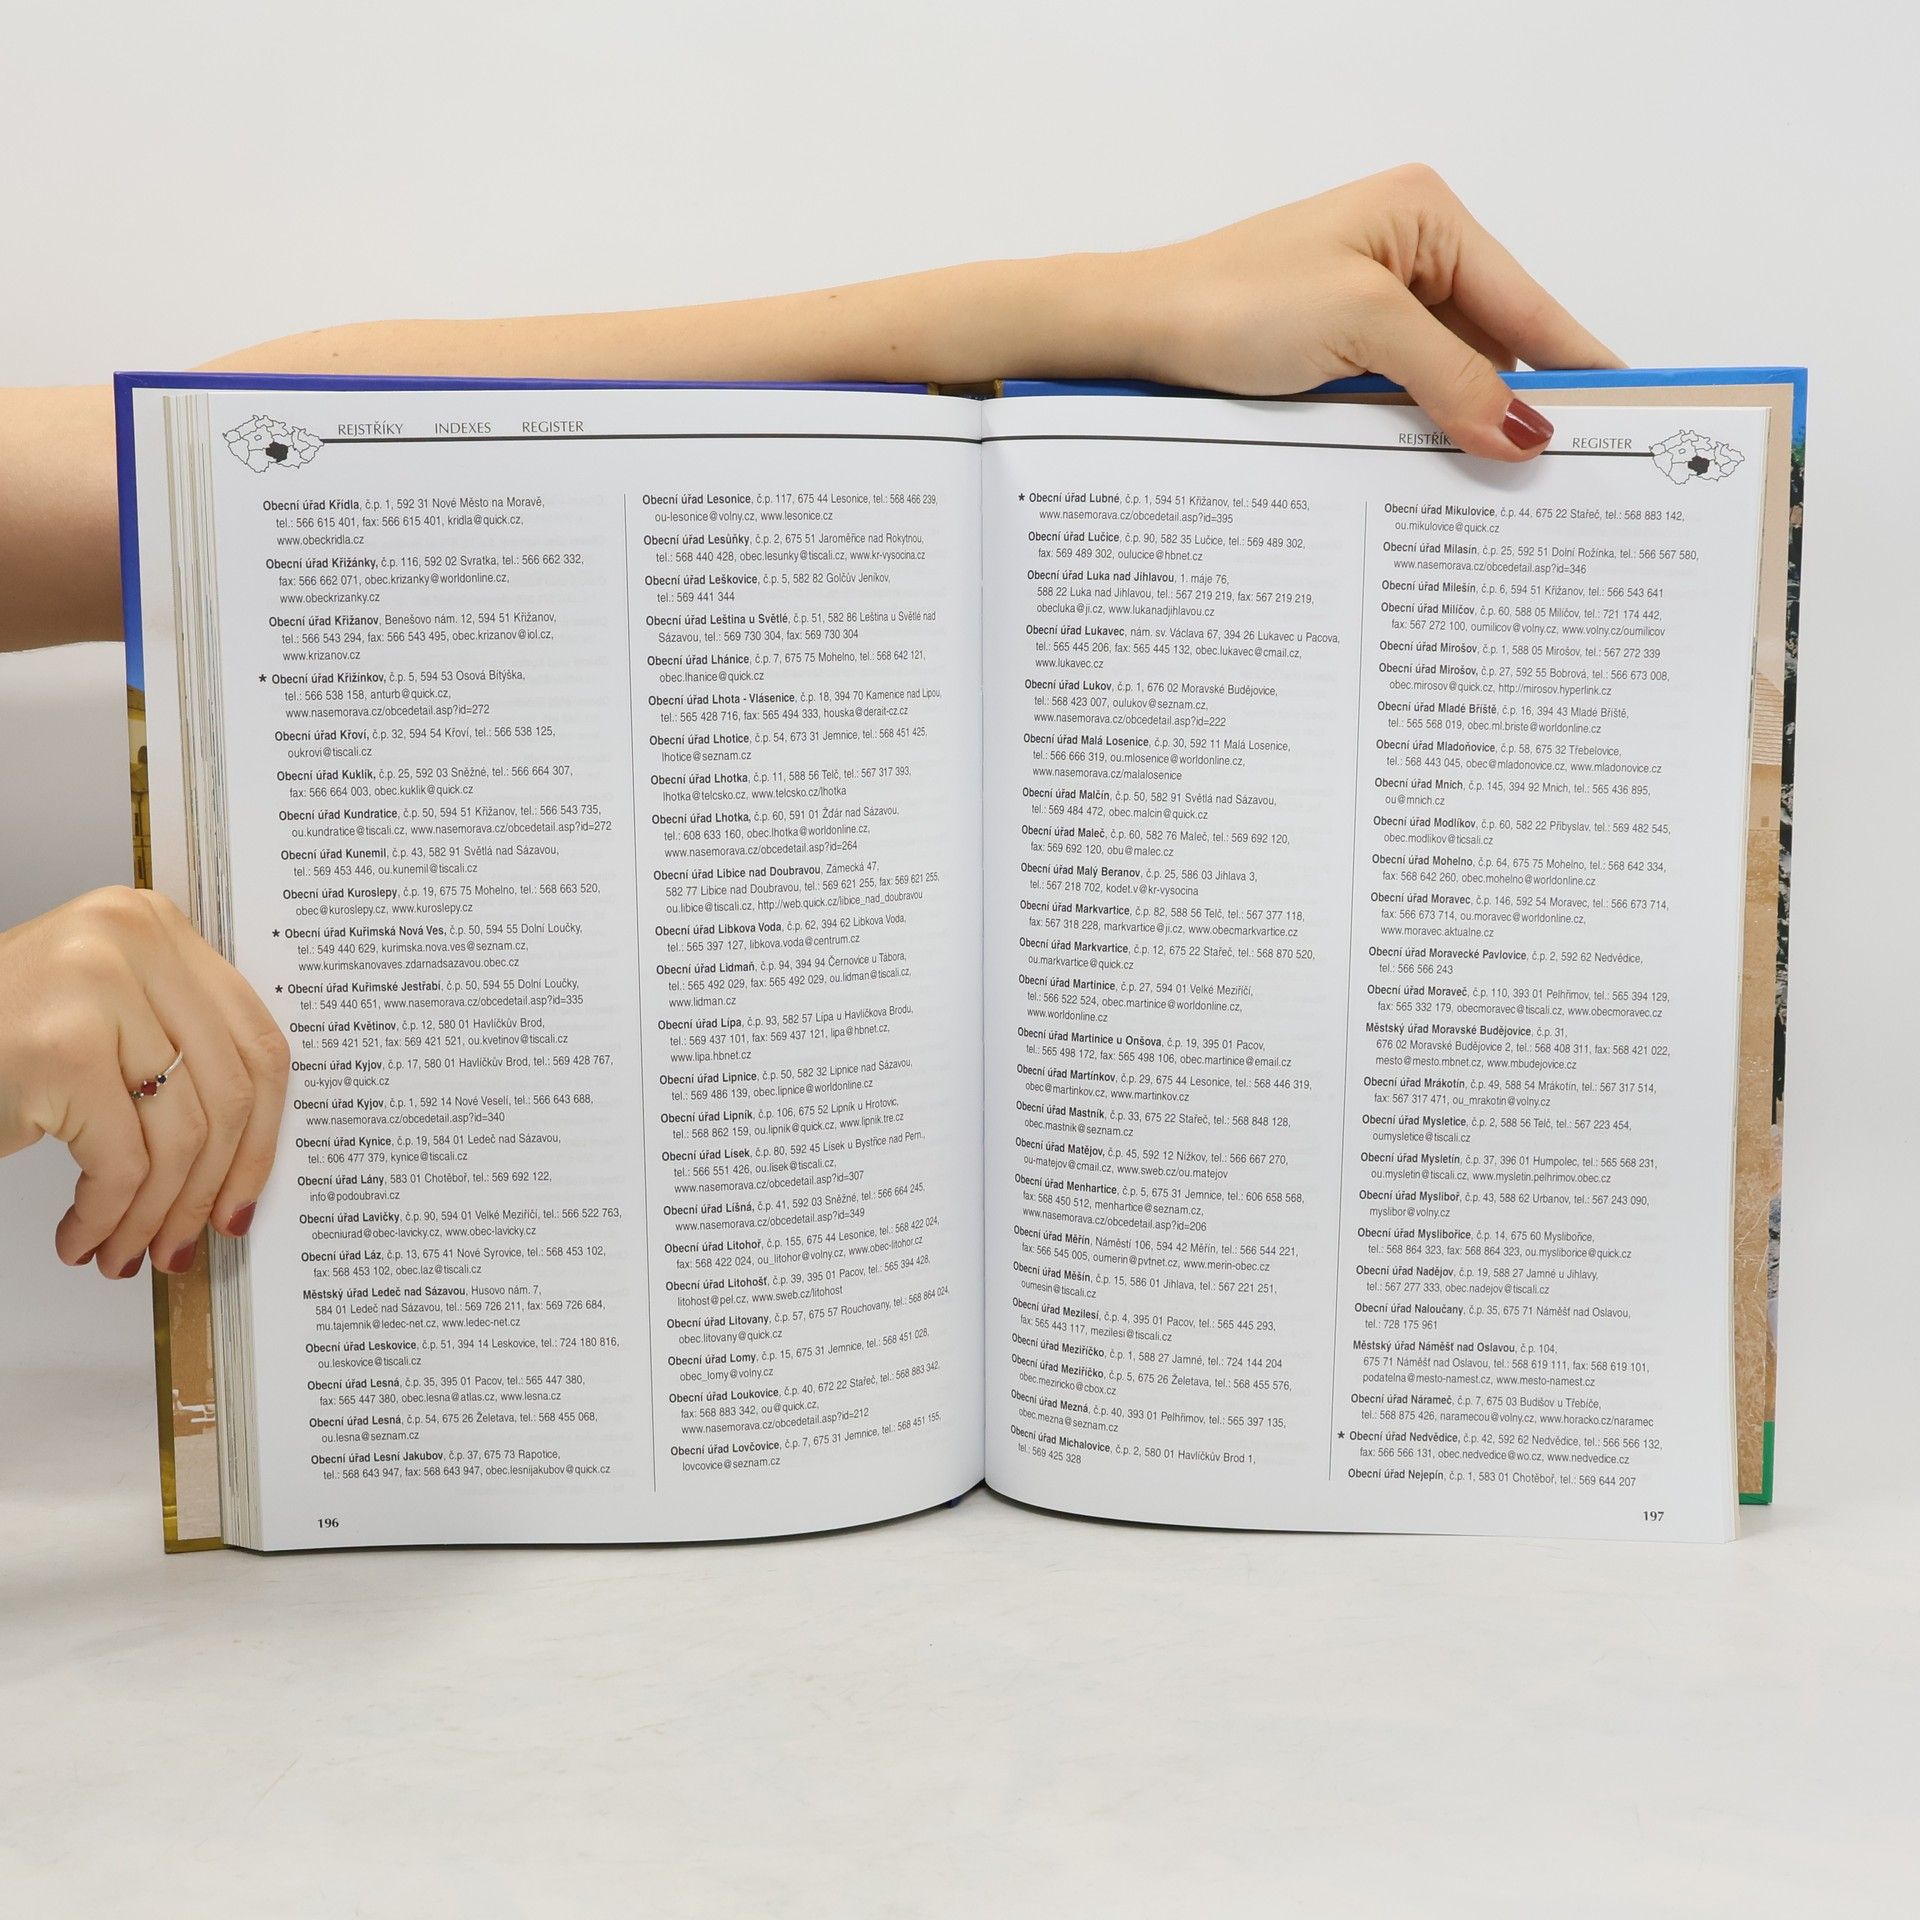 REJSTŘÍKY INDEXES REGISTER
Obecní úřad Křídla, č.p. 1, 592 31 Nové Město na Moravě,
tel.: 566 615 401, fax: 566 615 401, kridla@quick.cz,
www.obeckridla.cz
Obecní úřad Křižánky, č.p. 116, 592 02 Svratka, tel.: 566 662 332,
fax: 566 662 071, obec.krizanky@worldonline.cz,
www.obeckrizanky.cz
Obecní úřad Křižanov, Benešovo nám. 12, 594 51 Křižanov,
tel.: 566 543 294, fax: 566 543 495, obec.krizanov@iol.cz,
www.krizanov.cz
* Obecní úřad Křižínkov, č.p. 5, 594 53 Osová Bítýška,
tel.: 566 538 158, anturb@quick.cz,
www.nasemorava.cz/obcedetail.asp?id=272
Obecní úřad Křoví, č.p. 32, 594 54 Křoví, tel.: 566 538 125,
oukrovi@tiscali.cz
Obecní úřad Kuklík, č.p. 25, 592 03 Sněžné, tel.: 566 664 307,
fax: 566 664 003, obec.kuklik@quick.cz
Obecní úřad Kundratice, č.p. 50, 594 51 Křižanov, tel.: 566 543 735,
ou.kundratice@tiscali.cz, www.nasemorava.cz/obcedetail.asp?id=272
Obecní úřad Kunemil, č.p. 43, 582 91 Světlá nad Sázavou,
tel.: 569 453 446, ou.kunemil@tiscali.cz
Obecní úřad Kuroslepy, č.p. 19, 675 75 Mohelno, tel.: 568 663 520,
obec@kuroslepy.cz, www.kuroslepy.cz
* Obecní úřad Kuřimská Nová Ves, č.p. 50, 594 55 Dolní Loučky,
tel.: 549 440 629, kurimska.nova.ves@seznam.cz,
www.kurimskanovaves.zdarnadsazavou.obec.cz
* Obecní úřad Kuřimské Jestřabí, č.p. 50, 594 55 Dolní Loučky,
tel.: 549 440 651, www.nasemorava.cz/obcedetail.asp?id=335
Obecní úřad Květinov, č.p. 12, 580 01 Havlíčkův Brod,
tel.: 569 421 521, fax: 569 421 521, ou.kvetinov@tiscali.cz
Obecní úřad Kyjov, č.p. 17, 580 01 Havlíčkův Brod, tel.: 569 428 767,
ou-kyjov@quick.cz
Obecní úřad Kyjov, č.p. 1, 592 14 Nové Veselí, tel.: 566 643 688,
www.nasemorava.cz/obcedetail.asp?id=340
Obecní úřad Kynice, č.p. 19, 584 01 Ledeč nad Sázavou,
tel.: 606 477 379, kynice@tiscali.cz
Obecní úřad Lány, 583 01 Chotěboř, tel.: 569 692 122,
info@podoubravi.cz
Obecní úřad Lavičky, č.p. 90, 594 01 Velké Meziříčí, tel.: 566 522 763,
obecniurad@obec-lavicky.cz, www.obec-lavicky.cz
Obecní úřad Láz, č.p. 13, 675 41 Nové Syrovice, tel.: 568 453 102,
fax: 568 453 102, obec.laz@tiscali.cz
Městský úřad Ledeč nad Sázavou, Husovo nám. 7,
584 01 Ledeč nad Sázavou, tel.: 569 726 211, fax: 569 726 684,
mu.tajemnik@ledec-net.cz, www.ledec-net.cz
Obecní úřad Leskovice, č.p. 51, 394 14 Leskovice, tel.: 724 180 816,
ou.leskovice@tiscali.cz
Obecní úřad Lesná, č.p. 35, 395 01 Pacov, tel.: 565 447 380,
fax: 565 447 380, obec.lesna@atlas.cz, www.lesna.cz
Obecní úřad Lesná, č.p. 54, 675 26 Želetava, tel.: 568 455 068,
ou.lesna@seznam.cz
Obecní úřad Lesní Jakubov, č.p. 37, 675 73 Rapotice,
tel.: 568 643 947, fax: 568 643 947, obec.lesnijakubov@quick.cz
Obecní úřad Lesonice, č.p. 117, 675 44 Lesonice, tel.: 568 466 239,
ou-lesonice@volny.cz, www.lesonice.cz
Obecní úřad Lesůňky, č.p. 2, 675 51 Jaroměřice nad Rokytnou,
tel.: 568 440 428, obec.lesunky@tiscali.cz, www.kr-vysocina.cz
Obecní úřad Leškovice, č.p. 5, 582 82 Golčův Jeníkov,
tel.: 569 441 344
Obecní úřad Leština u Světlé, č.p. 51, 582 86 Leština u Světlé nad
Sázavou, tel.: 569 730 304, fax: 569 730 304
Obecní úřad Lhánice, č.p. 7, 675 75 Mohelno, tel.: 568 642 121,
obec.lhanice@quick.cz
Obecní úřad Lhota - Vlásenice, č.p. 18, 394 70 Kamenice nad Lipou,
tel.: 565 428 716, fax: 565 494 333, houska@derait-cz.cz
Obecní úřad Lhotice, č.p. 54, 673 31 Jemnice, tel.: 568 451 425,
lhotice@seznam.cz
Obecní úřad Lhotka, č.p. 11, 588 56 Telč, tel.: 567 317 393,
lhotka@telcsko.cz, www.telcsko.cz/lhotka
Obecní úřad Lhotka, č.p. 60, 591 01 Žďár nad Sázavou,
tel.: 608 633 160, obec.lhotka@worldonline.cz,
www.nasemorava.cz/obcedetail.asp?id=264
Obecní úřad Libice nad Doubravou, Zámecká 47,
582 77 Libice nad Doubravou, tel.: 569 621 255, fax: 569 621 255,
ou.libice@tiscali.cz, http://web.quick.cz/libice_nad_doubravou
Obecní úřad Libkova Voda, č.p. 62, 394 62 Libkova Voda,
tel.: 565 397 127, libkova.voda@centrum.cz
Obecní úřad Lidmaň, č.p. 94, 394 94 Černovice u Tábora,
tel.: 565 492 029, fax: 565 492 029, ou.lidman@tiscali.cz,
www.lidman.cz
Obecní úřad Lípa, č.p. 93, 582 57 Lípa u Havlíčkova Brodu,
tel.: 569 437 101, fax: 569 437 121, lipa@hbnet.cz,
www.lipa.hbnet.cz
Obecní úřad Lipnice, č.p. 50, 582 32 Lipnice nad Sázavou,
tel.: 569 486 139, obec.lipnice@worldonline.cz
Obecní úřad Lipník, č.p. 106, 675 52 Lipník u Hrotovic,
tel.: 568 862 159, ou.lipnik@quick.cz, www.lipnik.tre.cz
Obecní úřad Lísek, č.p. 80, 592 45 Lísek u Bystřice nad Pern.,
tel.: 566 551 426, ou.lisek@tiscali.cz,
www.nasemorava.cz/obcedetail.asp?id=307
Obecní úřad Líšná, č.p. 41, 592 03 Sněžné, tel.: 566 664 245,
www.nasemorava.cz/obcedetail.asp?id=349
Obecní úřad Litohoř, č.p. 155, 675 44 Lesonice, tel.: 568 422 024,
fax: 568 422 024, ou_litohor@volny.cz, www.obec-litohor.cz
Obecní úřad Litohošť, č.p. 39, 395 01 Pacov, tel.: 565 394 428,
litohost@pel.cz, www.sweb.cz/litohost
Obecní úřad Litovany, č.p. 57, 675 57 Rouchovany, tel.: 568 864 024,
obec.litovany@quick.cz
Obecní úřad Lomy, č.p. 15, 675 31 Jemnice, tel.: 568 451 028,
obec_lomy@volny.cz
Obecní úřad Loukovice, č.p. 40, 672 22 Stařeč, tel.: 568 883 342,
fax: 568 883 342, ou@quick.cz,
www.nasemorava.cz/obcedetail.asp?id=212
Obecní úřad Lovčovice, č.p. 7, 675 31 Jemnice, tel.: 568 451 155,
lovcovice@seznam.cz
196
REJSTŘÍK REGISTER
* Obecní úřad Lubné, č.p. 1, 594 51 Křižanov, tel.: 549 440 653,
www.nasemorava.cz/obcedetail.asp?id=395
Obecní úřad Lučice, č.p. 90, 582 35 Lučice, tel.: 569 489 302,
fax: 569 489 302, oulucice@hbnet.cz
Obecní úřad Luka nad Jihlavou, 1. máje 76,
588 22 Luka nad Jihlavou, tel.: 567 219 219, fax: 567 219 219,
obecluka@ji.cz, www.lukanadjihlavou.cz
Obecní úřad Lukavec, nám. sv. Václava 67, 394 26 Lukavec u Pacova,
tel.: 565 445 206, fax: 565 445 132, obec.lukavec@cmail.cz,
www.lukavec.cz
Obecní úřad Lukov, č.p. 1, 676 02 Moravské Budějovice,
tel.: 568 423 007, oulukov@seznam.cz,
www.nasemorava.cz/obcedetail.asp?id=222
Obecní úřad Malá Losenice, č.p. 30, 592 11 Malá Losenice,
tel.: 566 666 319, ou.mlosenice@worldonline.cz,
www.nasemorava.cz/malalosenice
Obecní úřad Malčín, č.p. 50, 582 91 Světlá nad Sázavou,
tel.: 569 484 472, obec.malcin@quick.cz
Obecní úřad Maleč, č.p. 60, 582 76 Maleč, tel.: 569 692 120,
fax: 569 692 120, obu@malec.cz
Obecní úřad Malý Beranov, č.p. 25, 586 03 Jihlava 3,
tel.: 567 218 702, kodet.v@kr-vysocina
Obecní úřad Markvartice, č.p. 82, 588 56 Telč, tel.: 567 377 118,
fax: 567 318 228, markvartice@ji.cz, www.obecmarkvartice.cz
Obecní úřad Markvartice, č.p. 12, 675 22 Stařeč, tel.: 568 870 520,
ou.markvartice@quick.cz
Obecní úřad Martinice, č.p. 27, 594 01 Velké Meziříčí,
tel.: 566 522 524, obec.martinice@worldonline.cz,
www.worldonline.cz
Obecní úřad Martinice u Onšova, č.p. 19, 395 01 Pacov,
tel.: 565 498 172, fax: 565 498 106, obec.martinice@email.cz
Obecní úřad Martínkov, č.p. 29, 675 44 Lesonice, tel.: 568 446 319,
obec@martinkov.cz, www.martinkov.cz
Obecní úřad Mastník, č.p. 33, 675 22 Stařeč, tel.: 568 848 128,
obec.mastnik@seznam.cz
Obecní úřad Matějov, č.p. 45, 592 12 Nížkov, tel.: 566 667 270,
ou-matejov@cmail.cz, www.sweb.cz/ou.matejov
Obecní úřad Menhartice, č.p. 5, 675 31 Jemnice, tel.: 606 658 568,
fax: 568 450 512, menhartice@seznam.cz,
www.nasemorava.cz/obcedetail.asp?id=206
Obecní úřad Měřín, Náměstí 106, 594 42 Měřín, tel.: 566 544 221,
fax: 566 545 005, oumerin@pvtnet.cz, www.merin-obec.cz
Obecní úřad Měšín, č.p. 15, 586 01 Jihlava, tel.: 567 221 251,
oumesin@tiscali.cz
Obecní úřad Mezilesí, č.p. 4, 395 01 Pacov, tel.: 565 445 293,
fax: 565 443 117, mezilesi@tiscali.cz
Obecní úřad Meziříčko, č.p. 1, 588 27 Jamné, tel.: 724 144 204
Obecní úřad Meziříčko, č.p. 5, 675 26 Želetava, tel.: 568 455 576,
obec.meziricko@cbox.cz
Obecní úřad Mezná, č.p. 40, 393 01 Pelhřimov, tel.: 565 397 135,
obec.mezna@seznam.cz
Obecní úřad Michalovice, č.p. 2, 580 01 Havlíčkův Brod 1,
tel.: 569 425 328
Obecní úřad Mikulovice, č.p. 44, 675 22 Stařeč, tel.: 568 883 142,
ou.mikulovice@quick.cz
Obecní úřad Milasín, č.p. 25, 592 51 Dolní Rožínka, tel.: 566 567 580,
www.nasemorava.cz/obcedetail.asp?id=346
Obecní úřad Milešín, č.p. 6, 594 51 Křižanov, tel.: 566 543 641
Obecní úřad Milíčov, č.p. 60, 588 05 Milíčov, tel.: 721 174 442,
fax: 567 272 100, oumilicov@volny.cz, www.volny.cz/oumilicov
Obecní úřad Mirošov, č.p. 1, 588 05 Mirošov, tel.: 567 272 339
Obecní úřad Mirošov, č.p. 27, 592 55 Bobrová, tel.: 566 673 008,
obec.mirosov@quick.cz, http://mirosov.hyperlink.cz
Obecní úřad Mladé Bříště, č.p. 16, 394 43 Mladé Bříště,
tel.: 565 568 019, obec.ml.briste@worldonline.cz
Obecní úřad Mladoňovice, č.p. 58, 675 32 Třebelovice,
tel.: 568 443 045, obec@mladonovice.cz, www.mladonovice.cz
Obecní úřad Mnich, č.p. 145, 394 92 Mnich, tel.: 565 436 895,
ou@mnich.cz
Obecní úřad Modlíkov, č.p. 60, 582 22 Přibyslav, tel.: 569 482 545,
obec.modlikov@ticsali.cz
Obecní úřad Mohelno, č.p. 64, 675 75 Mohelno, tel.: 568 642 334,
fax: 568 642 260, obec.mohelno@worldonline.cz
Obecní úřad Moravec, č.p. 146, 592 54 Moravec, tel.: 566 673 714,
fax: 566 673 714, ou.moravec@worldonline.cz,
www.moravec.aktualne.cz
Obecní úřad Moravecké Pavlovice, č.p. 2, 592 62 Nedvědice,
tel.: 566 566 243
Obecní úřad Moraveč, č.p. 110, 393 01 Pelhřimov, tel.: 565 394 129,
fax: 565 332 179, obecmoravec@tiscali.cz, www.obecmoravec.cz
Městský úřad Moravské Budějovice, č.p. 31,
676 02 Moravské Budějovice 2, tel.: 568 408 311, fax: 568 421 022,
mesto@mesto.mbnet.cz, www.mbudejovice.cz
Obecní úřad Mrákotín, č.p. 49, 588 54 Mrákotín, tel.: 567 317 514,
fax: 567 317 471, ou_mrakotin@volny.cz
Obecní úřad Mysletice, č.p. 2, 588 56 Telč, tel.: 567 223 454,
oumysletice@tiscali.cz
Obecní úřad Mysletín, č.p. 37, 396 01 Humpolec, tel.: 565 568 231,
ou.mysletin@tiscali.cz, www.mysletin.pelhrimov.obec.cz
Obecní úřad Mysliboř, č.p. 43, 588 62 Urbanov, tel.: 567 243 090,
myslibor@volny.cz
Obecní úřad Myslibořice, č.p. 14, 675 60 Myslibořice,
tel.: 568 864 323, fax: 568 864 323, ou.mysliborice@quick.cz
Obecní úřad Nadějov, č.p. 19, 588 27 Jamné u Jihlavy,
tel.: 567 277 333, obec.nadejov@tiscali.cz
Obecní úřad Naloučany, č.p. 35, 675 71 Náměšť nad Oslavou,
tel.: 728 175 961
Městský úřad Náměšť nad Oslavou, č.p. 104,
675 71 Náměšť nad Oslavou, tel.: 568 619 111, fax: 568 619 101,
podatelna@mesto-namest.cz, www.mesto-namest.cz
Obecní úřad Nárameč, č.p. 7, 675 03 Budišov u Třebíče,
tel.: 568 875 426, naramecou@volny.cz, www.horacko.cz/naramec
* Obecní úřad Nedvědice, č.p. 42, 592 62 Nedvědice, tel.: 566 566 132,
fax: 566 566 131, obec.nedvedice@wo.cz, www.nedvedice.cz
Obecní úřad Nejepín, č.p. 1, 583 01 Chotěboř, tel.: 569 644 207
197